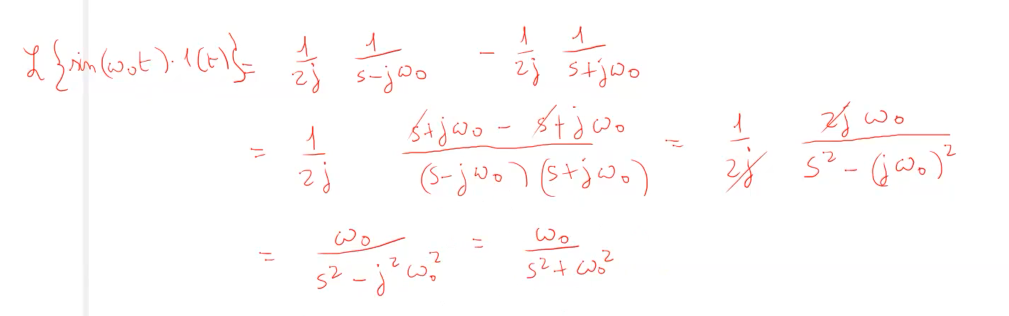 ℒ{sin(ω₀t)·1(t)} = 1/2j 1/(s-jω₀) - 1/2j 1/(s+jω₀)
= 1/2j (s+jω₀ - s+jω₀)/((s-jω₀)(s+jω₀)) = 1/2j 2jω₀/(s² - (jω₀)²)
= ω₀/(s² - j²ω₀²) = ω₀/(s² + ω₀²)